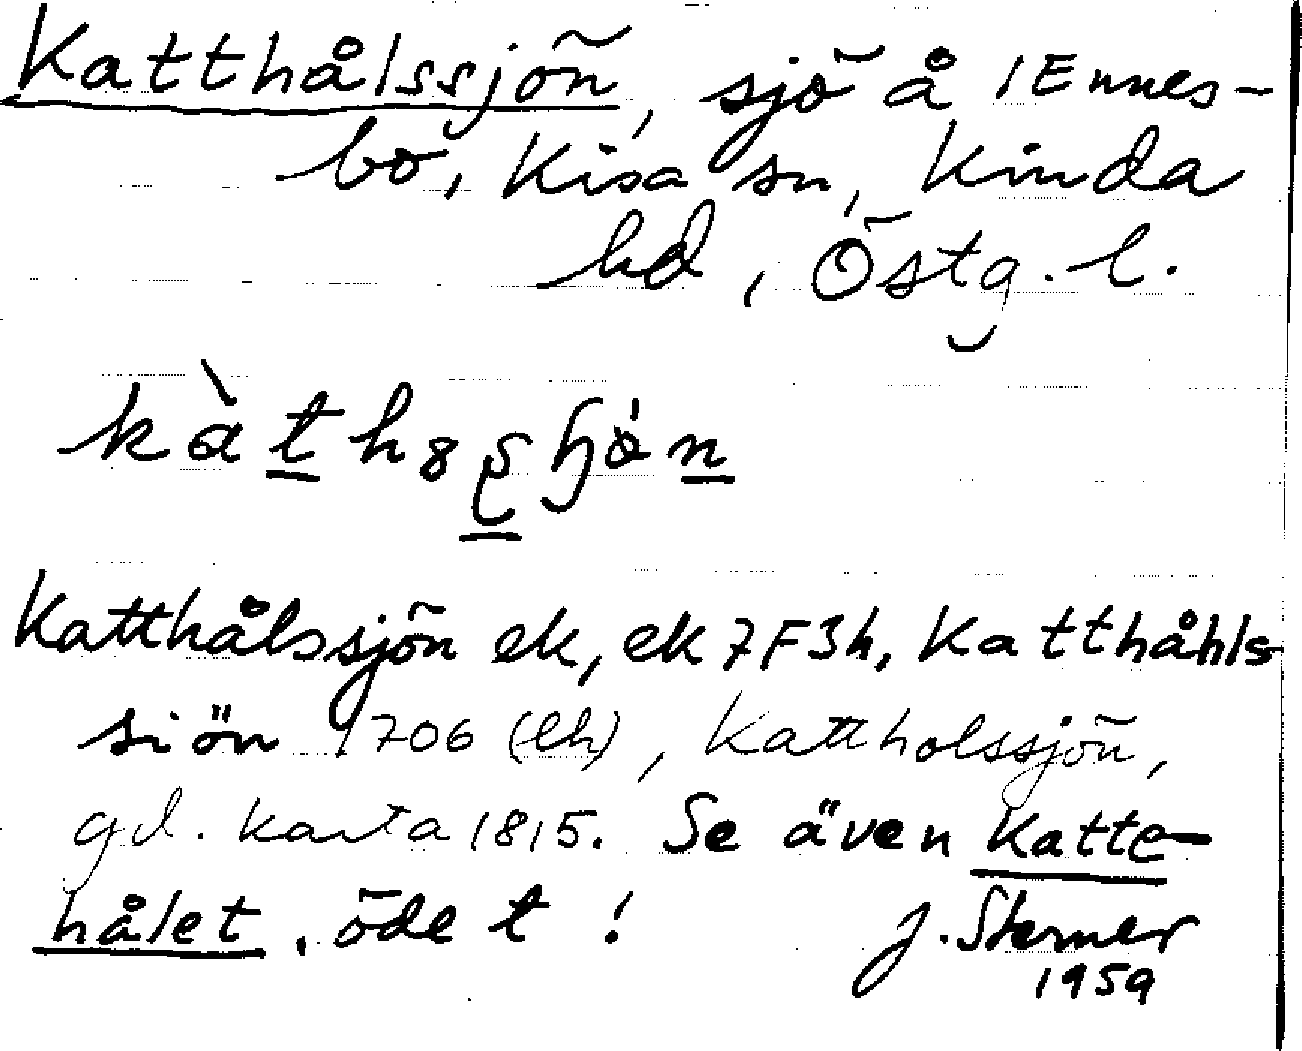 Katthålssjön, sjö å 1 Ennes-
bo, Kisa sn, Kinda
hd, Östg. l.
Katthålssjön ek, ek 7F3h, Katthåhls
siön 1706 (lh), Kattholssjön,
gd. karta 1815. Se även Katte-
hålet, öde t !
J. Sterner
1959